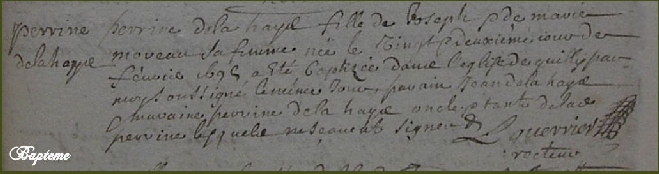 perrine
delahaÿe
perrine delahaÿe fille de Joseph et de marie
moreau sa femme née le Vingt deuxième jour de
février 1695 a été baptizée dans l'église de quilly par
moy soussigné le même Jour, parain Jean delahaÿe
maraine perrine delahaÿe oncle et tante de lad.
perrine lesquels ne sçavent signer
Querrier
recteur
Bapteme